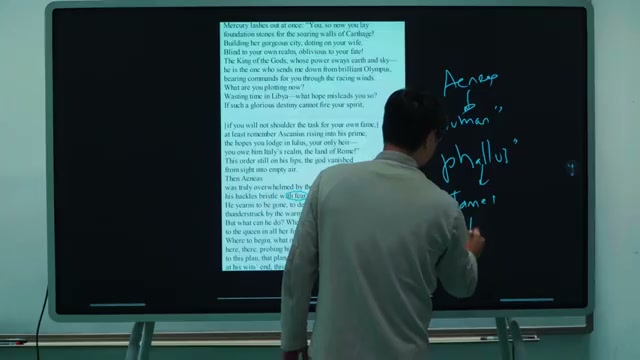 Mercury lashes out at once: "You, so now you lay
foundation stones for the soaring walls of Carthage!
Building her gorgeous city, doting on your wife.
Blind to your own realm, oblivious to your fate!
The King of the Gods, whose power sways earth and sky—
he is the one who sends me down from brilliant Olympus,
bearing commands for you through the racing winds.
What are you plotting now?
Wasting time in Libya—what hope misleads you so?
If such a glorious destiny cannot fire your spirit,
[if you will not shoulder the task for your own fame,]
at least remember Ascanius rising into his prime,
the hopes you lodge in Iulus, your only heir—
you owe him Italy's realm, the land of Rome!"
This order still on his lips, the god vanished
from sight into empty air.
Then Aeneas
was truly overwhelmed by the
his hackles bristle with fear
He yearns to be gone, to
thunderstruck by the
But what can he do?
to the queen in all her
Where to begin, what
here, there, probing
to this plan, that
at his wits' end, this
Aeneas
phallus"